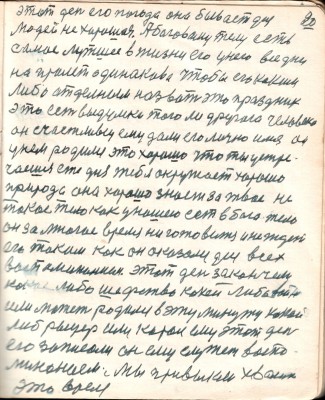 этот ден его погода она бывает дня 20
людей не хорошая. А багованутем есть
самае лутшее в жизни его унего все дни
на промет одинакова чтобы его каким
либо отделным назвать это праздник
это ест выдумки того ли другого человека
он счастливы ему дали его лично имя он
унем родился это хорошо что ты устре
чаешся сто дня тебя окружает хорошо
природа она хорошо знает за твае не
такое тело как унашего ест в бога тело
он за многое время ни готовить и
его таким как он оказался ден всех
воспоминаниям этот ден закончем
какое либо шефство какой либо
или может родился в эту минуту какой
либ рыцор или корол ему этот ден
его записали он ему служет воспо
минанаем. мы привыкли
это всем